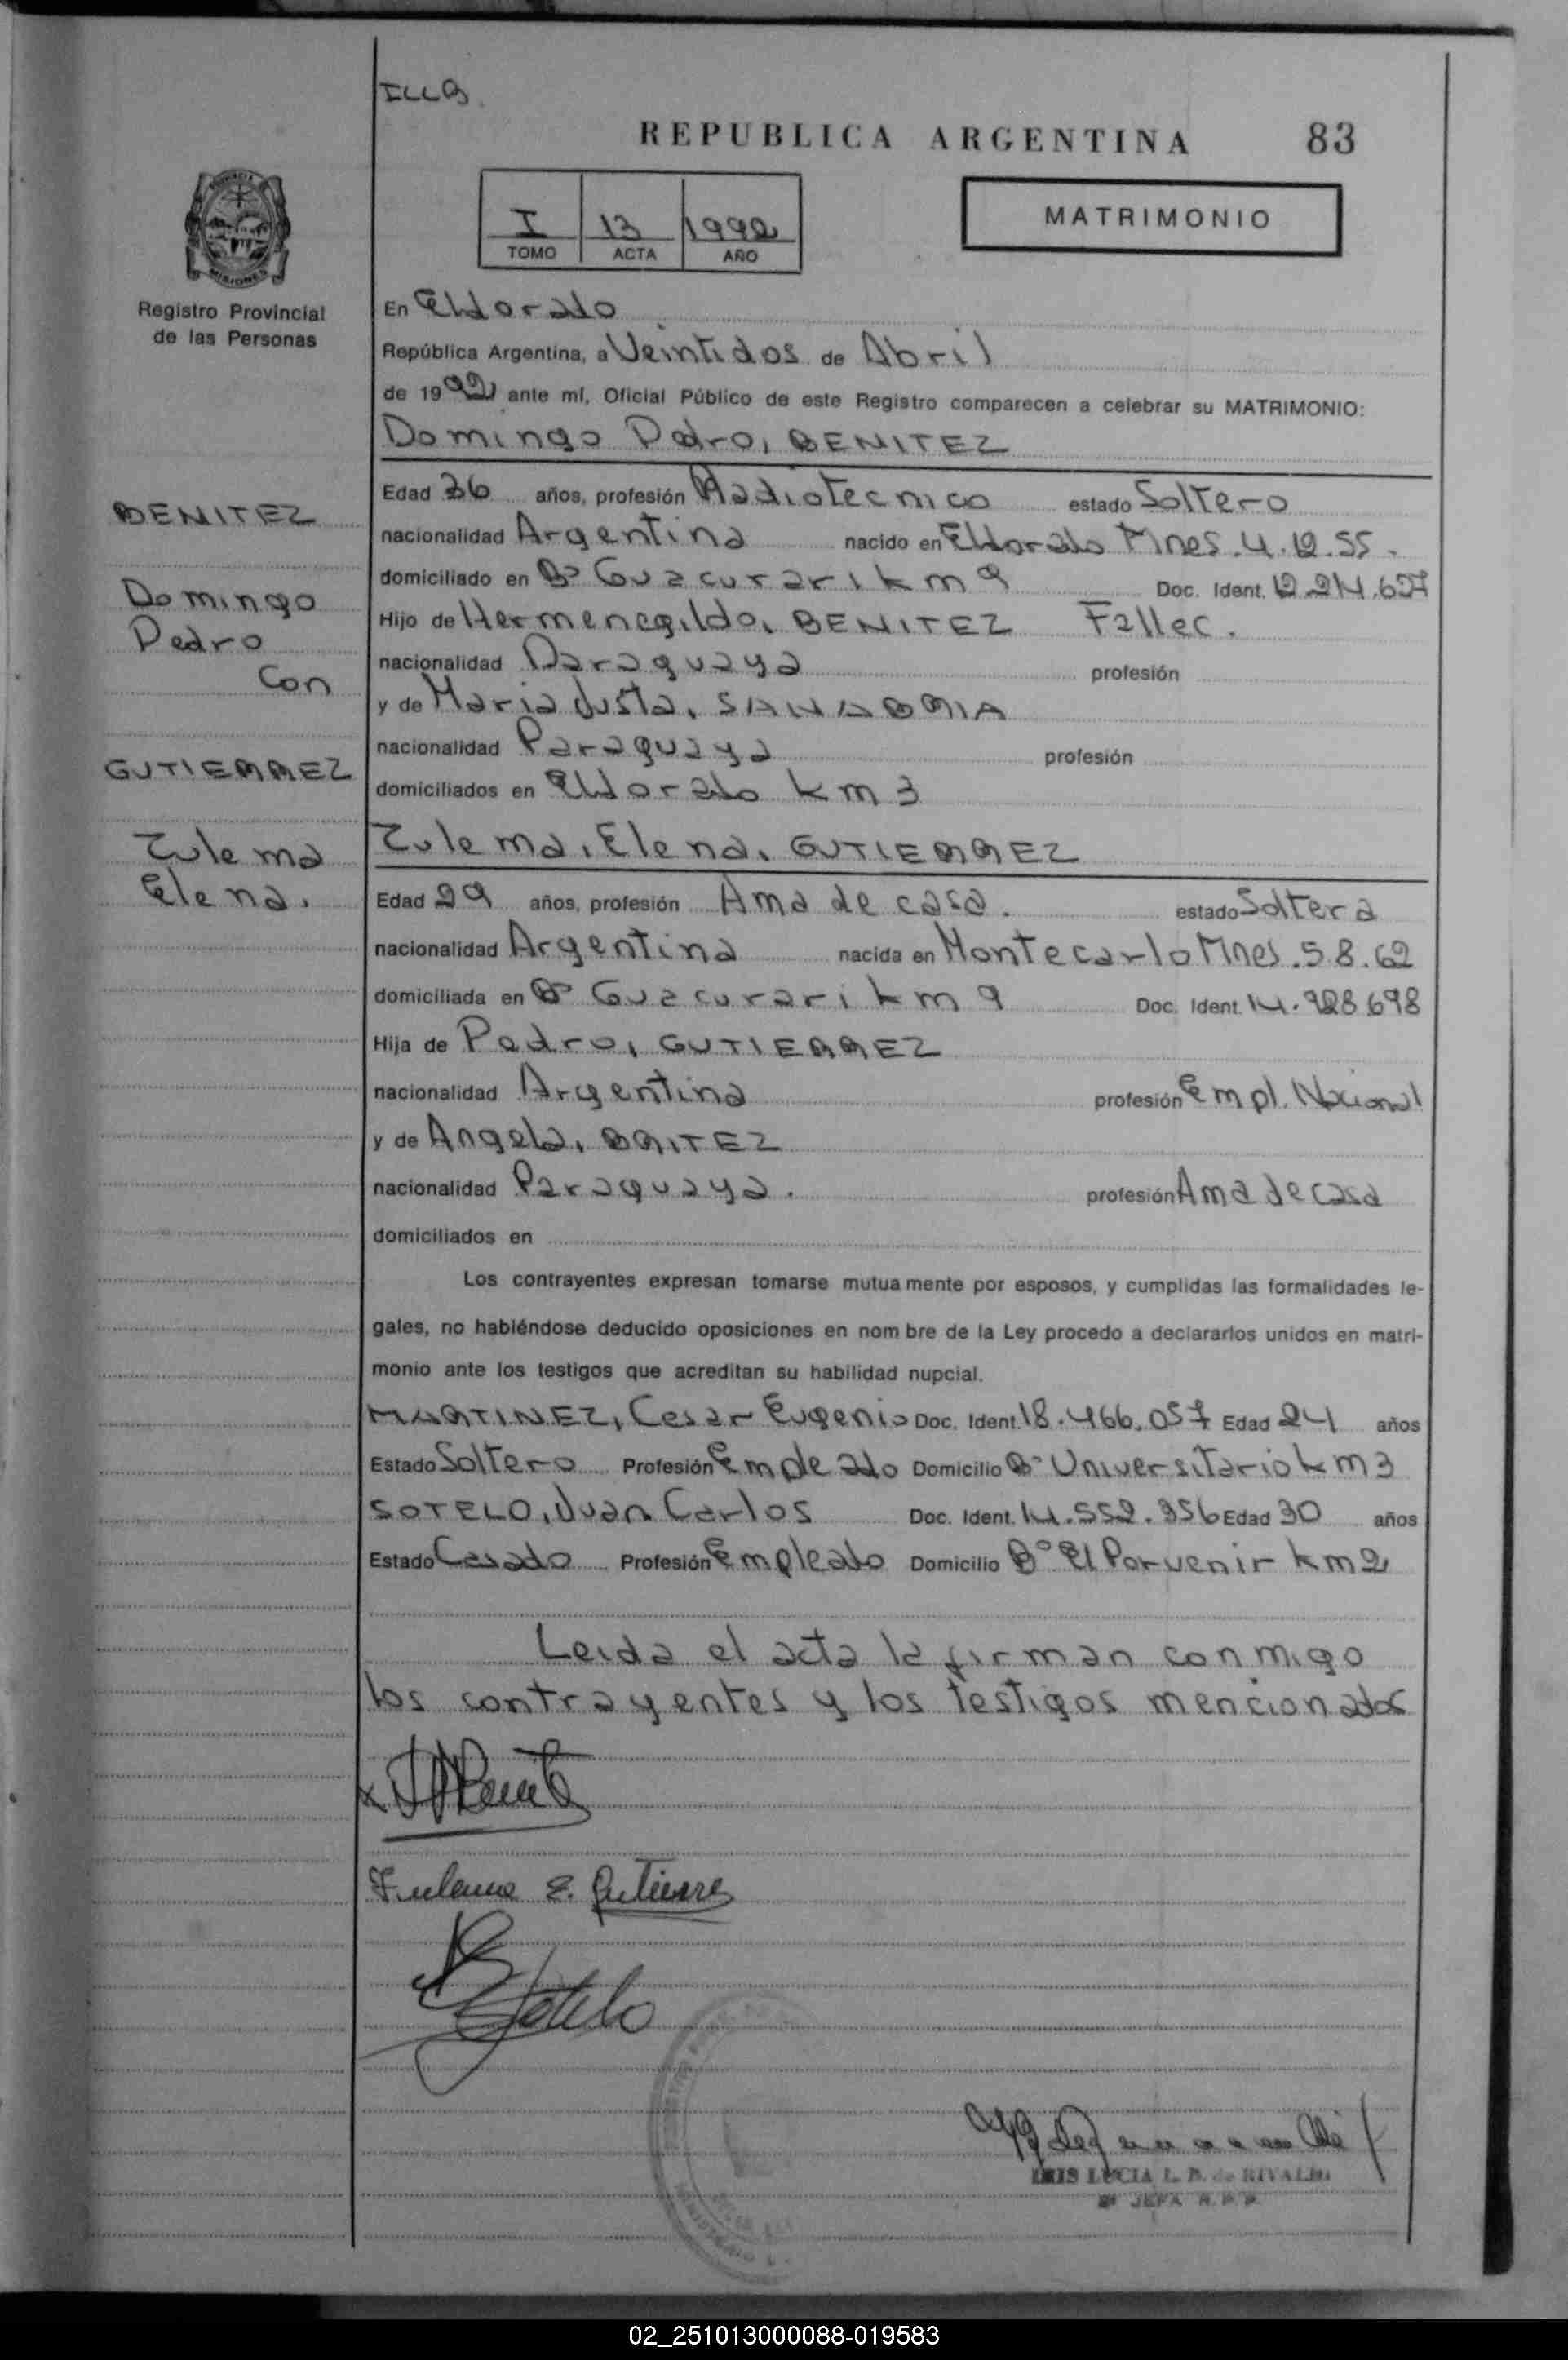 ILLB.
REPUBLICA ARGENTINA 83
I 13 1992
TOMO ACTA AÑO
MATRIMONIO
PROVINCIA
MISIONES
Registro Provincial
de las Personas
En Eldorado
República Argentina, a Veintidos de Abril
de 1992 ante mí, Oficial Público de este Registro comparecen a celebrar su MATRIMONIO:
Domingo Pedro, BENITEZ
BENITEZ
Domingo
Pedro
Con
GUTIERREZ
Zulema
Elena.
Edad 36 años, profesión Radiotecnico estado Soltero
nacionalidad Argentina nacido en Eldorado Mnes. 4.12.55.
domiciliado en B° Guacurari km 9 Doc. Ident. 12.214.627
Hijo de Hermenegildo, BENITEZ Fallec.
nacionalidad Paraguaya profesión
y de Maria Justa, SANABRIA
nacionalidad Paraguaya profesión
domiciliados en Eldorado km 3
Zulema, Elena, GUTIERREZ
Edad 29 años, profesión Ama de casa. estado Soltera
nacionalidad Argentina nacida en Montecarlo Mnes. 5.8.62
domiciliada en B° Guacurari km 9 Doc. Ident. 14.928.698
Hija de Pedro, GUTIERREZ
nacionalidad Argentina profesión Empl. Nacional
y de Angela, BRITEZ
nacionalidad Paraguaya. profesión Ama de casa
domiciliados en
Los contrayentes expresan tomarse mutuamente por esposos, y cumplidas las formalidades le-
gales, no habiéndose deducido oposiciones en nombre de la Ley procedo a declararlos unidos en matri-
monio ante los testigos que acreditan su habilidad nupcial.
MARTINEZ, Cesar Eugenio Doc. Ident. 18.466.057 Edad 24 años
Estado Soltero Profesión Empleado Domicilio B° Universitario km 3
SOTELO, Juan Carlos Doc. Ident. 14.552.356 Edad 30 años
Estado Casado Profesión Empleado Domicilio B° El Porvenir km 2
Leida el acta la firman conmigo
los contrayentes y los testigos mencionados
Zulema E. Gutierrez
Sotelo
IRIS LUCIA L. B. de RIVALDI
JEFA R. P. P.
02_251013000088-019583